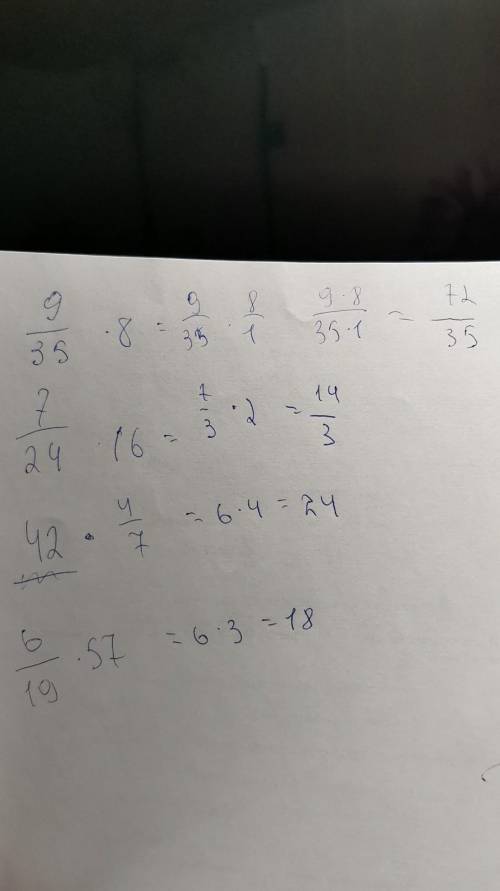 9/35 · 8 = 9/35 · 8/1 9·8/35·1 = 72/35
7/24 · 16 = 7/3 · 2 = 14/3
42 · 4/7 = 6·4 = 24
6/19 · 57 = 6·3 = 18